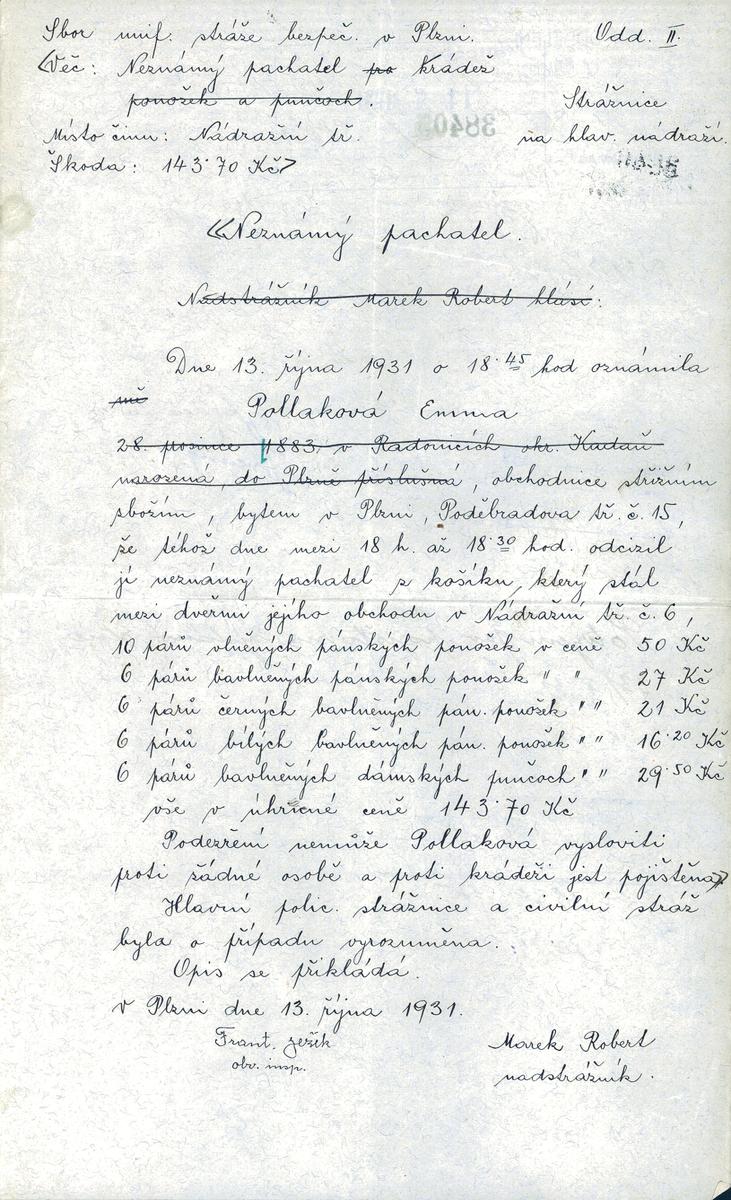 Sbor unif. stráže bezpeč. v Plzni. Odd. II.
Věc: Neznámý pachatel pro krádež
ponožek a punčoch. Strážnice
Místo činu: Nádražní tř. na hlav. nádraží.
Škoda: 143·70 Kč
Neznámý pachatel.
Nadstrážník Marek Robert hlásí:
Dne 13. října 1931 o 18·45 hod oznámila
mě Pollaková Emma
28. prosince 1883 v Radonicích okr. Kadaň
narozená, do Plzně příslušná, obchodnice střižním
zbožím, bytem v Plzni, Poděbradova tř. č. 15,
že téhož dne mezi 18 h. až 18·30 hod. odcizil
jí neznámý pachatel z košíku, který stál
mezi dveřmi jejího obchodu v Nádražní tř. č. 6,
10 párů vlněných pánských ponožek v ceně 50 Kč
6 párů bavlněných pánských ponožek " " 27 Kč
6 párů černých bavlněných pán. ponožek " " 21 Kč
6 párů bílých bavlněných pán. ponožek " " 16·20 Kč
6 párů bavlněných dámských punčoch " " 29·50 Kč
vše v úhrnné ceně 143·70 Kč
Podezření nemůže Pollaková vysloviti
proti žádné osobě a proti krádeži jest pojištěna.
Hlavní polic. strážnice a civilní stráž
byla o případu vyrozuměna.
Opis se přikládá.
V Plzni dne 13. října 1931.
Frant. Ježík Marek Robert
obv. insp. nadstrážník.